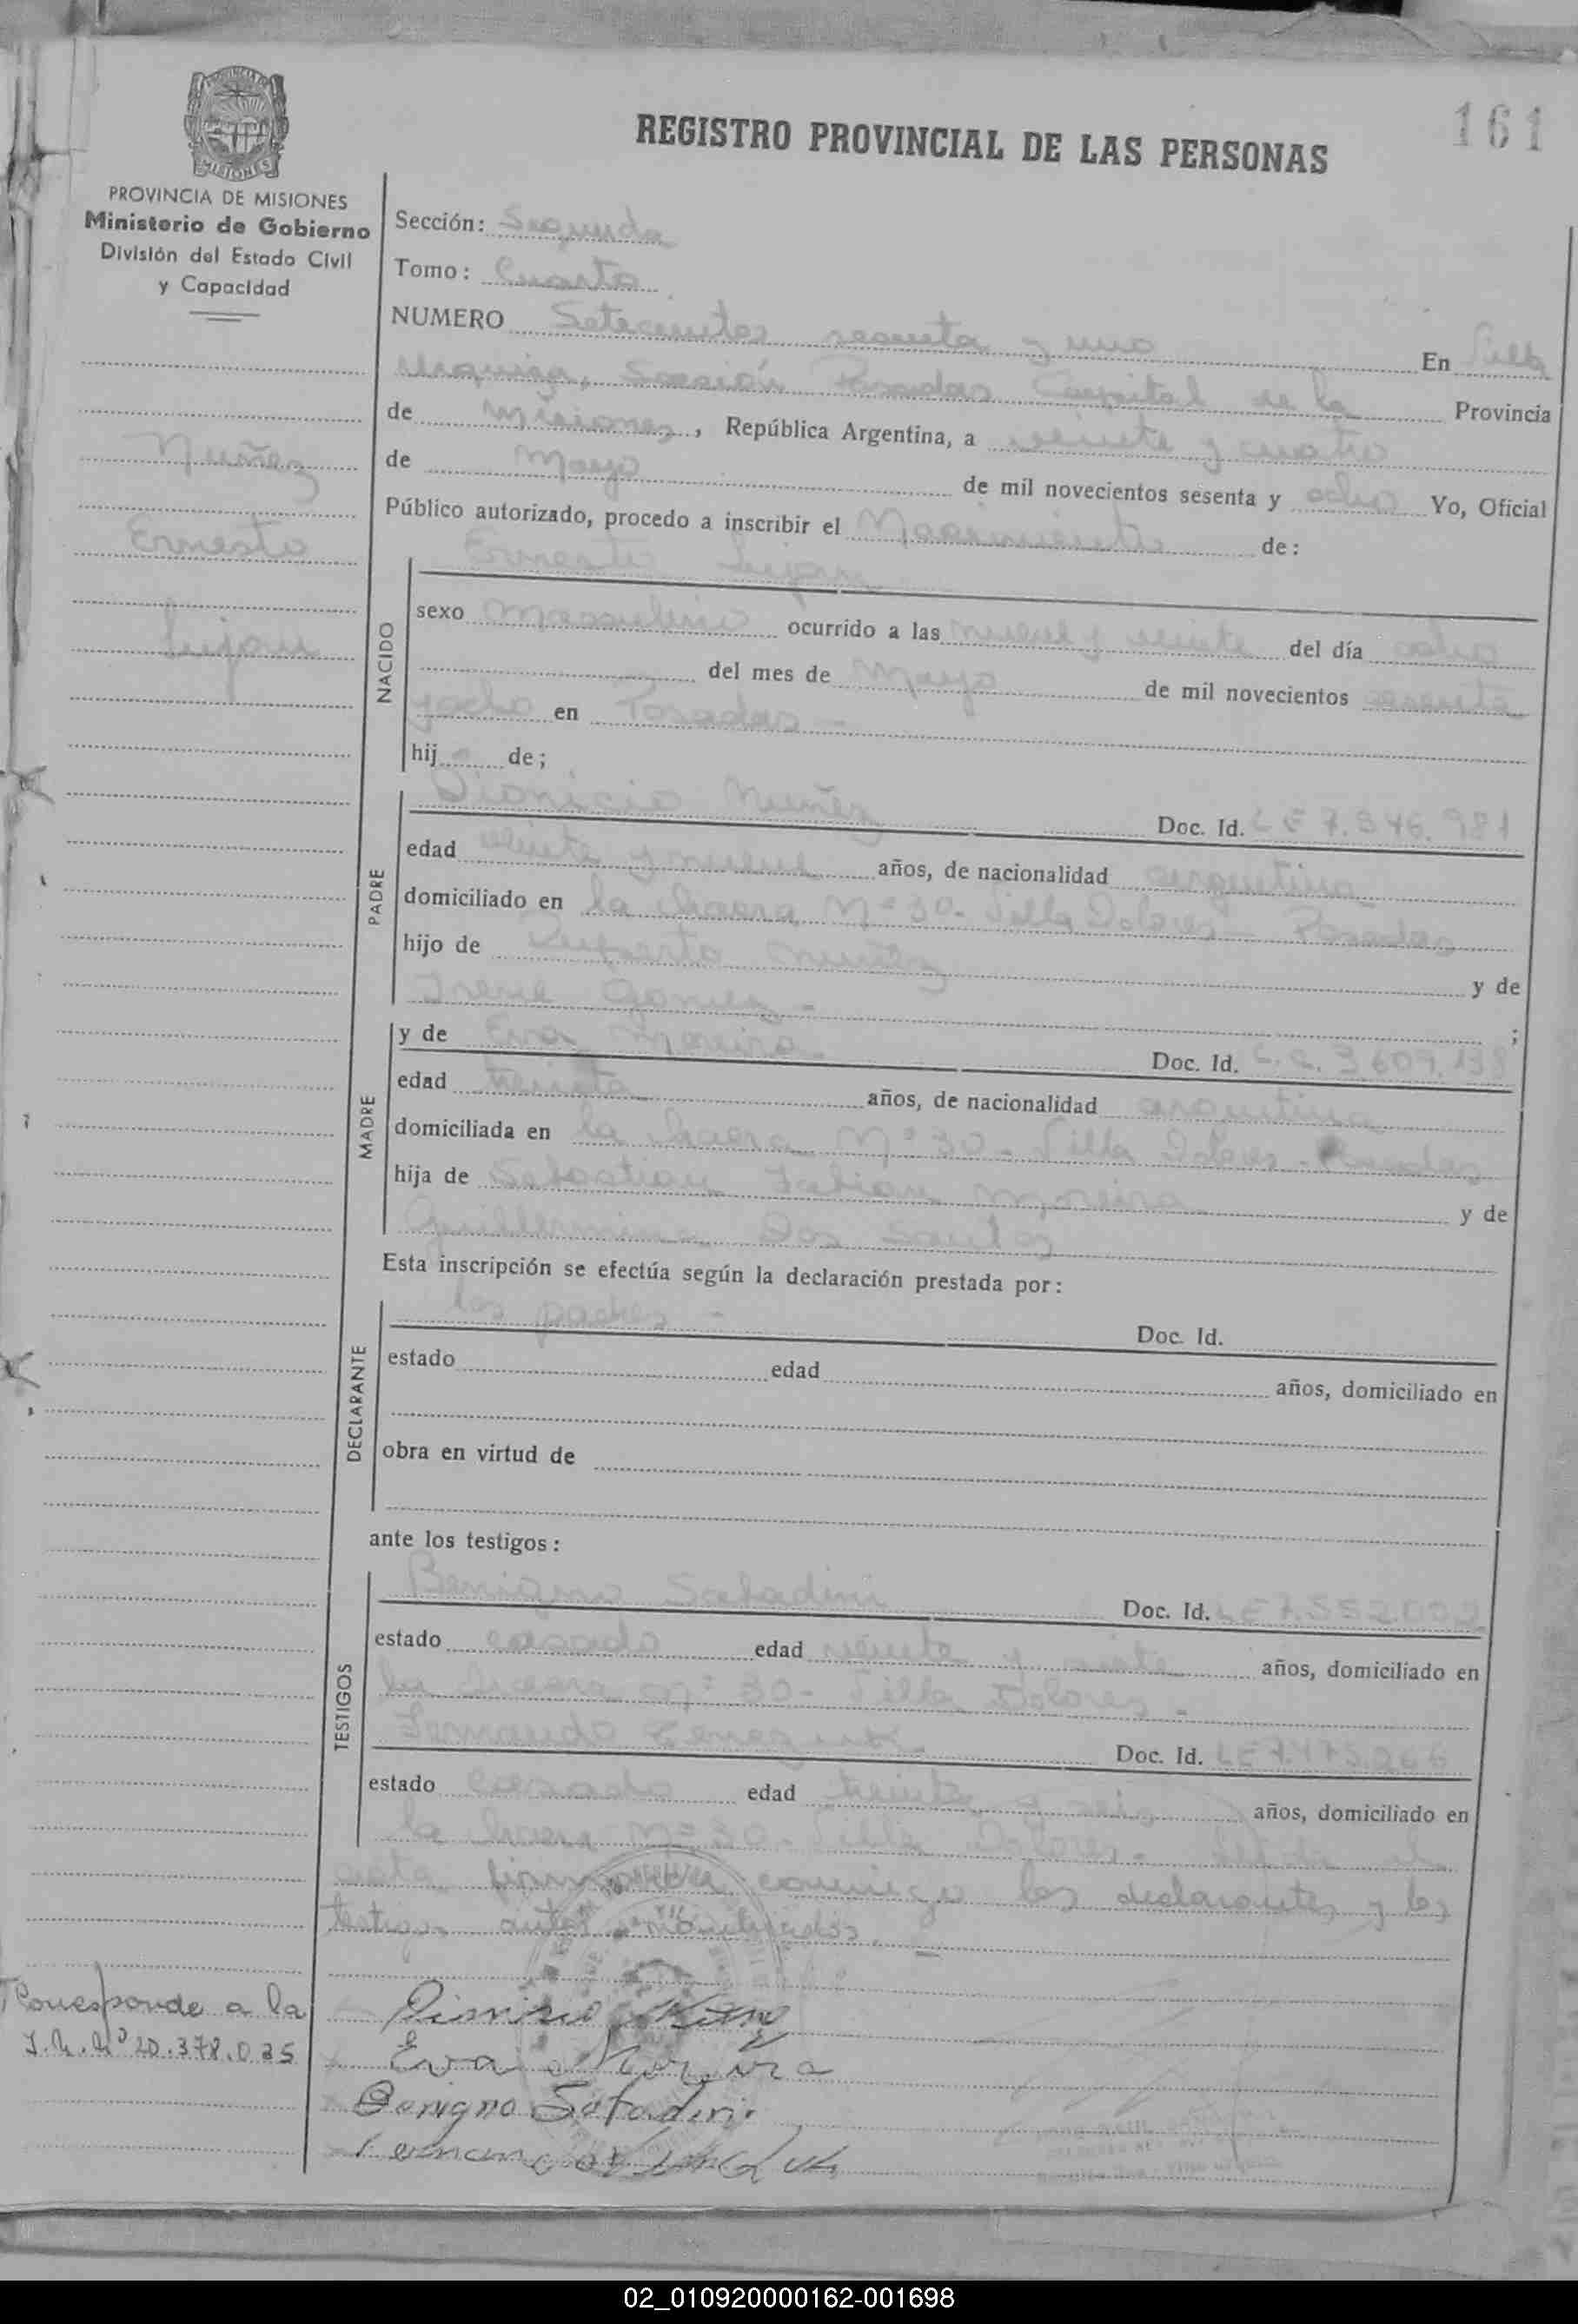 161
REGISTRO PROVINCIAL DE LAS PERSONAS
MISIONES
PROVINCIA DE MISIONES
Ministerio de Gobierno
División del Estado Civil
y Capacidad
Nuñez
Ernesto
Lujan
Sección: Segunda
Tomo: Cuarto
NUMERO Setecientos sesenta y uno En Villa
Urquiza, Sección Posadas Capital de la Provincia
de Misiones, República Argentina, a veinte y cuatro
de Mayo de mil novecientos sesenta y ocho Yo, Oficial
Público autorizado, procedo a inscribir el Nacimiento de:
NACIDO
Ernesto Lujan
sexo masculino ocurrido a las nueve y veinte del día ocho
del mes de Mayo de mil novecientos sesenta
y ocho en Posadas -
hij de;
PADRE
Dionicio Nuñez Doc. Id. LE 7.546.981
edad veinte y nueve años, de nacionalidad argentina
domiciliado en la chacra Nº 30 - Villa Dolores - Posadas
hijo de Ruperto Nuñez y de
Irene Gomez - ;
MADRE
y de Eva Moreira Doc. Id. L.C. 3.607.138
edad treinta años, de nacionalidad argentina
domiciliada en la chacra Nº 30 - Villa Dolores - Posadas
hija de Sebastian Fabian Moreira y de
Guillermina Dos Santos
Esta inscripción se efectúa según la declaración prestada por:
DECLARANTE
los padres - Doc. Id.
estado edad años, domiciliado en
obra en virtud de
ante los testigos:
TESTIGOS
Benigno Sabadini Doc. Id. LE 7.552.002
estado casado edad veinte y siete años, domiciliado en
la chacra Nº 30 - Villa Dolores -
Fernando Doc. Id. LE 7.475.266
estado casado edad treinta y seis años, domiciliado en
la chacra Nº 30 - Villa Dolores - el
acta, firmando conmigo los declarantes y los
testigos antes nombrados. -
Corresponde a la
20.378.035
Eva Moreira
Benigno Sabadini
02_010920000162-001698